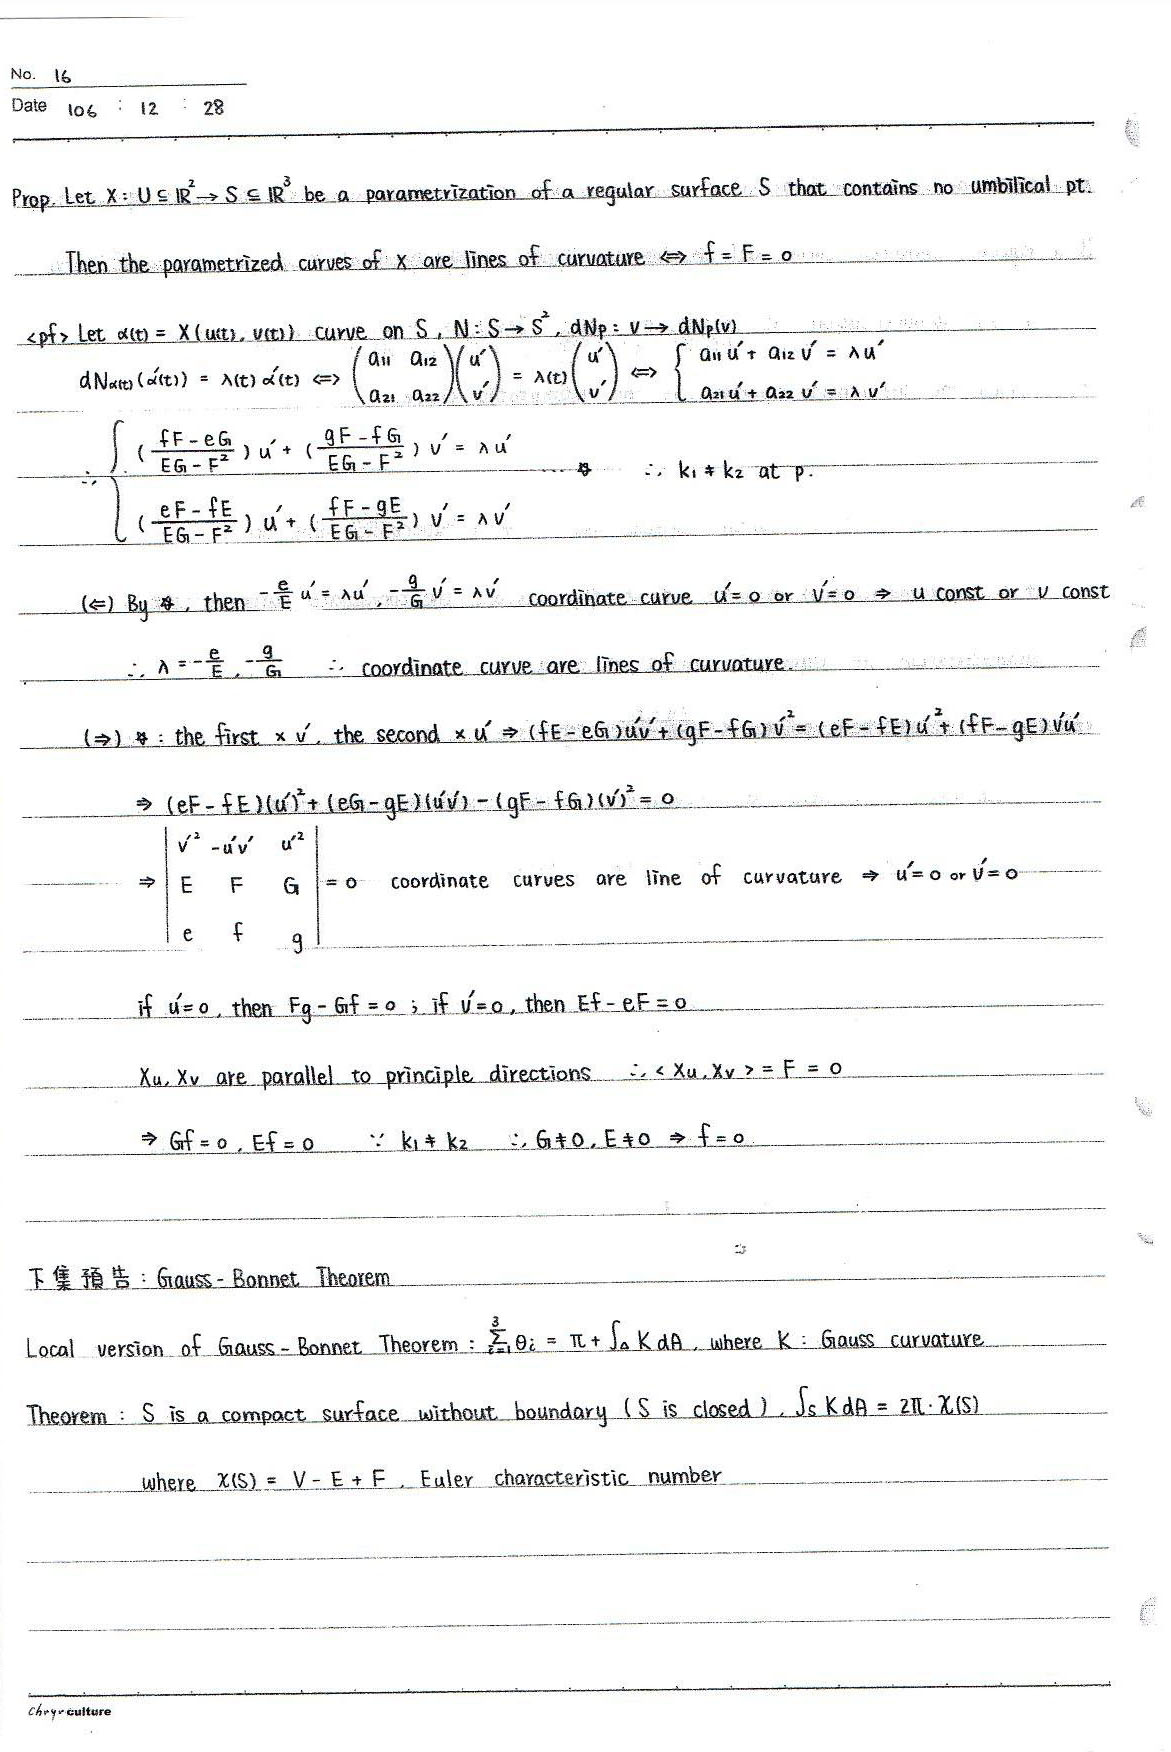 No. 16
Date 106 : 12 : 28
Prop. Let X : U ⊆ ℝ² → S ⊆ ℝ³ be a parametrization of a regular surface S that contains no umbilical pt.
Then the parametrized curves of X are lines of curvature ⇔ f = F = 0
<pf> Let α(t) = X(u(t), v(t)) curve on S, N : S → S², dNp : v → dNp(v)
dN_{α(t)}(α'(t)) = λ(t) α'(t) ⇔ (a₁₁ a₁₂ / a₂₁ a₂₂)(u' / v') = λ(t)(u' / v') ⇔ { a₁₁u' + a₁₂v' = λu'
a₂₁u' + a₂₂v' = λv'
∴ { ((fF-eG)/(EG-F²)) u' + ((gF-fG)/(EG-F²)) v' = λu'
... ✡ ∴ k₁ ≠ k₂ at p.
((eF-fE)/(EG-F²)) u' + ((fF-gE)/(EG-F²)) v' = λv'
(⇐) By ✡, then -e/E u' = λu', -g/G v' = λv' coordinate curve u'=0 or v'=0 ⇒ u const or v const
∴ λ = -e/E, -g/G ∴ coordinate curve are lines of curvature.
(⇒) ✡ : the first × v', the second × u' ⇒ (fE-eG)u'v' + (gF-fG)v'² = (eF-fE)u'² + (fF-gE)v'u'
⇒ (eF-fE)(u')² + (eG-gE)(u'v') - (gF-fG)(v')² = 0
⇒ | v'² -u'v' u'² |
| E F G | = 0 coordinate curves are line of curvature ⇒ u'=0 or v'=0
| e f g |
if u'=0, then Fg-Gf=0 ; if v'=0, then Ef-eF=0
Xu, Xv are parallel to principle directions ∴ <Xu, Xv> = F = 0
⇒ Gf=0, Ef=0 ∵ k₁ ≠ k₂ ∴ G≠0, E≠0 ⇒ f=0
下集預告 : Gauss-Bonnet Theorem
Local version of Gauss-Bonnet Theorem : Σ_{i=1}^{3} θi = π + ∫_Δ K dA, where K : Gauss curvature
Theorem : S is a compact surface without boundary (S is closed), ∫_S K dA = 2π · χ(S)
where χ(S) = V - E + F, Euler characteristic number
culture